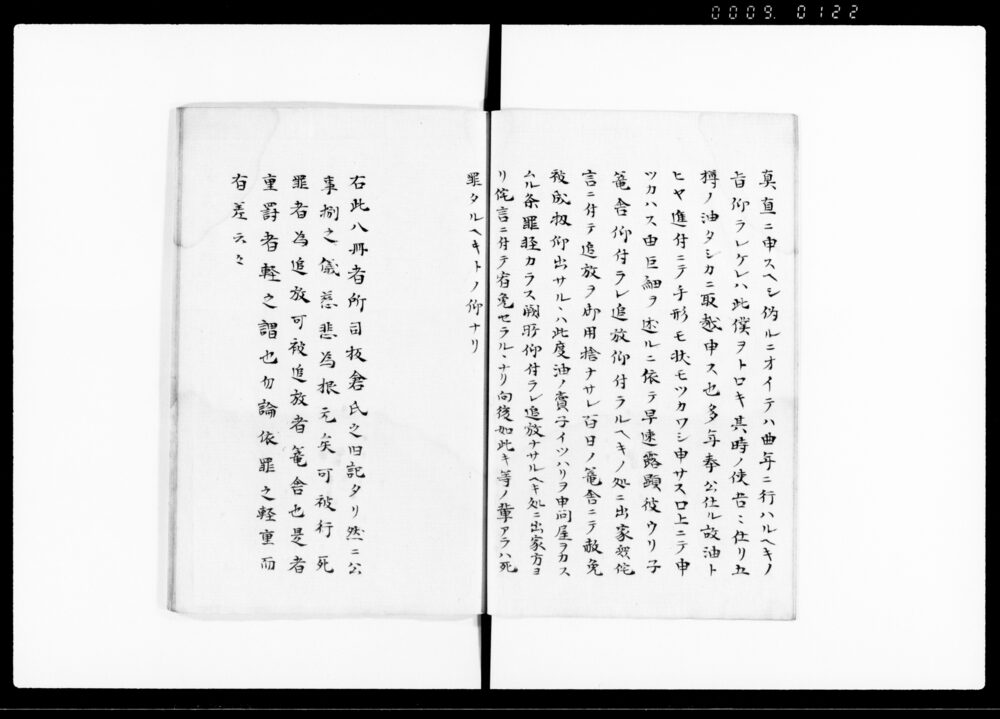 0009. 0122
真直ニ申スヘシ偽ルニオイテハ曲事ニ行ハルヘキノ
旨仰ラレケレハ此僕ヲトロキ其時ノ使吾ミ仕リ五
樽ノ油タシカニ取越申ス也多年奉公仕ル故油ト
ヒヤ進付ニテ手形モ状モツカワシ申サス口上ニテ申
ツカハス由巨細ヲ述ルニ依テ早速露顕彼ウリ子
篭舎仰付ラレ追放仰付ラルヘキノ処ニ出家衆侘
言ニ付テ追放ヲ御用捨ナサレ百日ノ篭舎ニテ赦免
被成扨仰出サルヽハ此度油ノ賣子イツハリヲ申問屋ヲカス
ムル条罪軽カラス闕所仰付ラレ追放ナサルヘキ処ニ出家方ヨ
リ侘言ニ付テ宥免セラルヽナリ向後如此キ等ノ輩アラハ死
罪タルヘキトノ仰ナリ
右此八冊者所司板倉氏之旧記タリ然ニ公
事捌之儀慈悲為根元矣可被行死
罪者為追放可被追放者篭舎也是者
重罸者軽之謂也勿論依罪之軽重而
有差云々